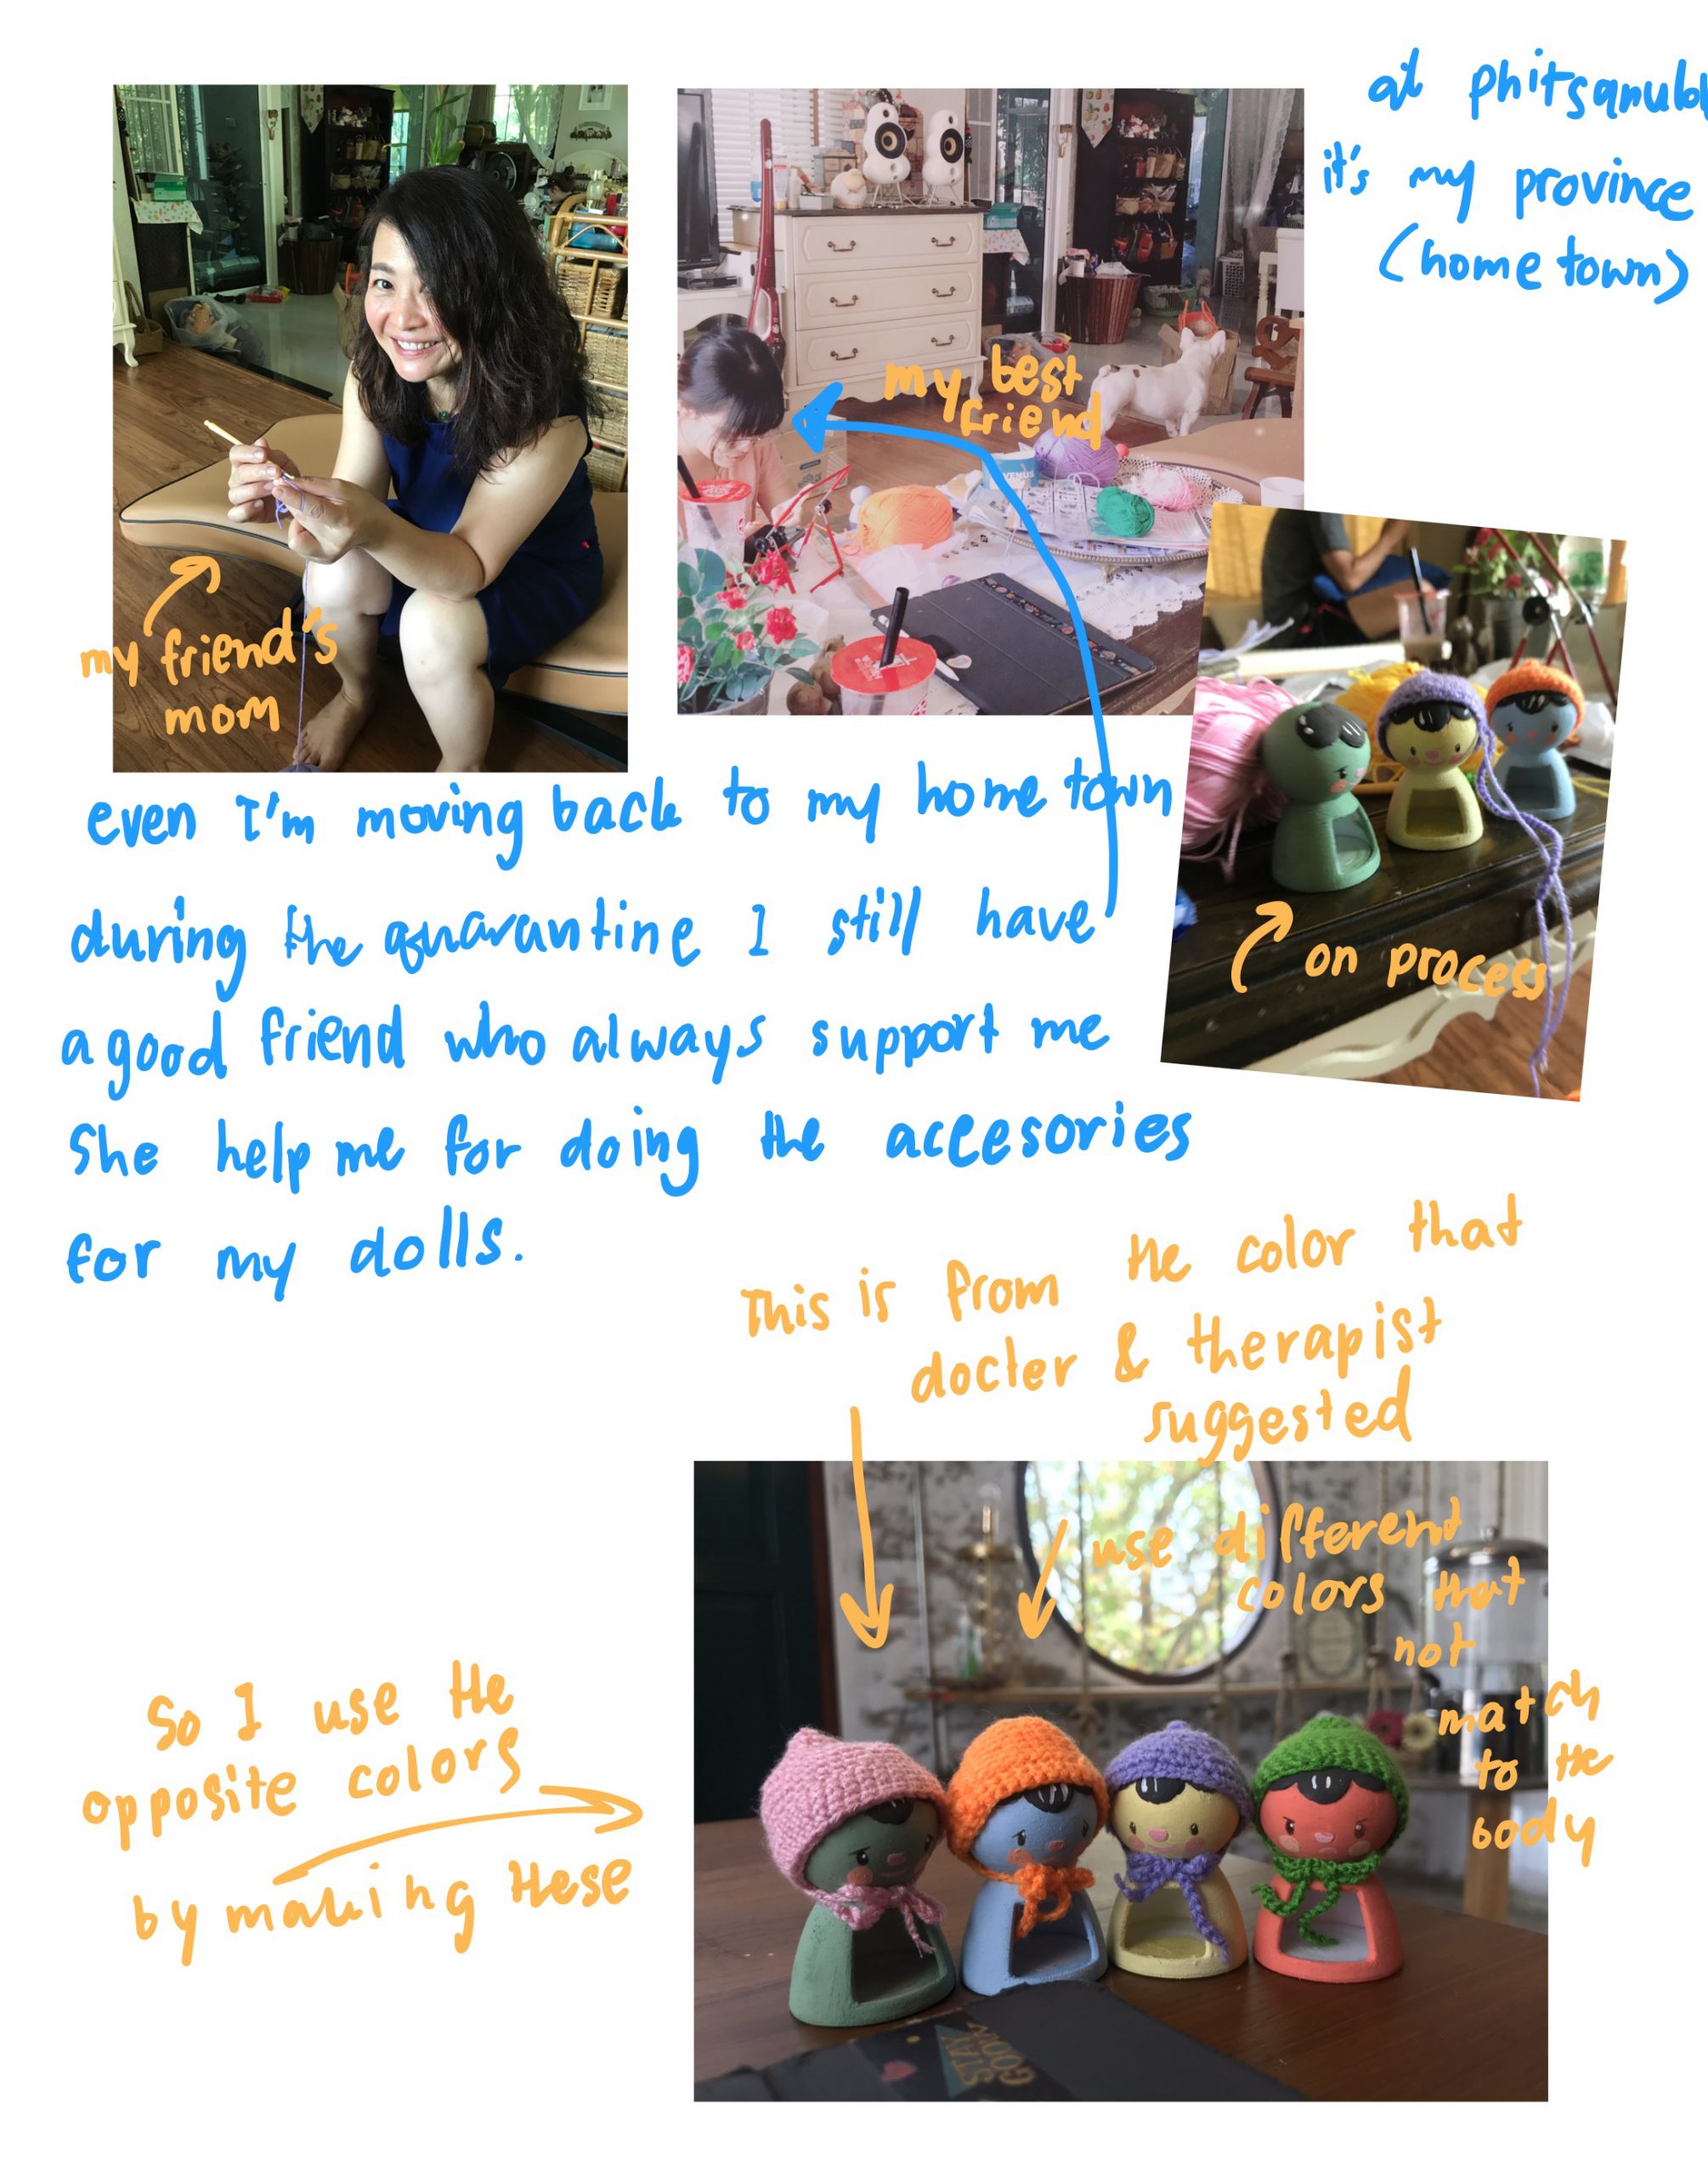 at phitsanulo
it's my province
(home town)
my best
friend
VENUS
my friend's
mom
on process
even I'm moving back to my home town
during the quarantine I still have
a good friend who always support me
She help me for doing the accesories
for my dolls.
This is from the color that
docter & therapist
suggested
use different
colors that
not
match
to the
body
So I use the
opposite colors
by making these
STAY
GOOW